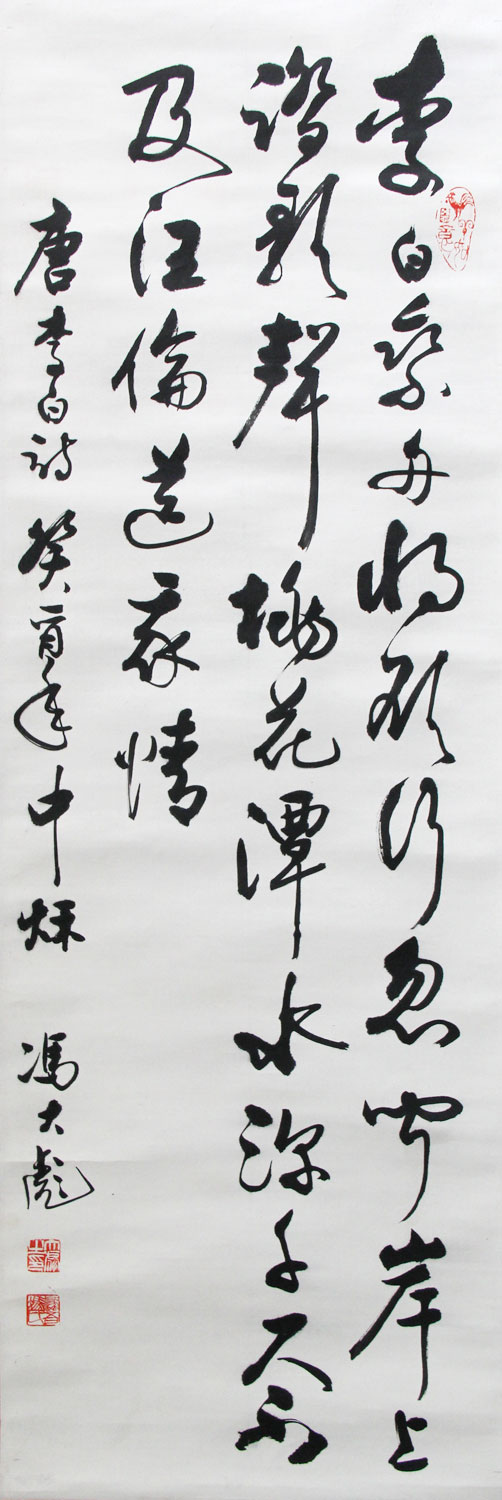 李白乘舟將欲行忽聞岸上
踏歌聲桃花潭水深千尺不
及汪倫送我情
唐李白詩癸酉年中秋 馮大彪